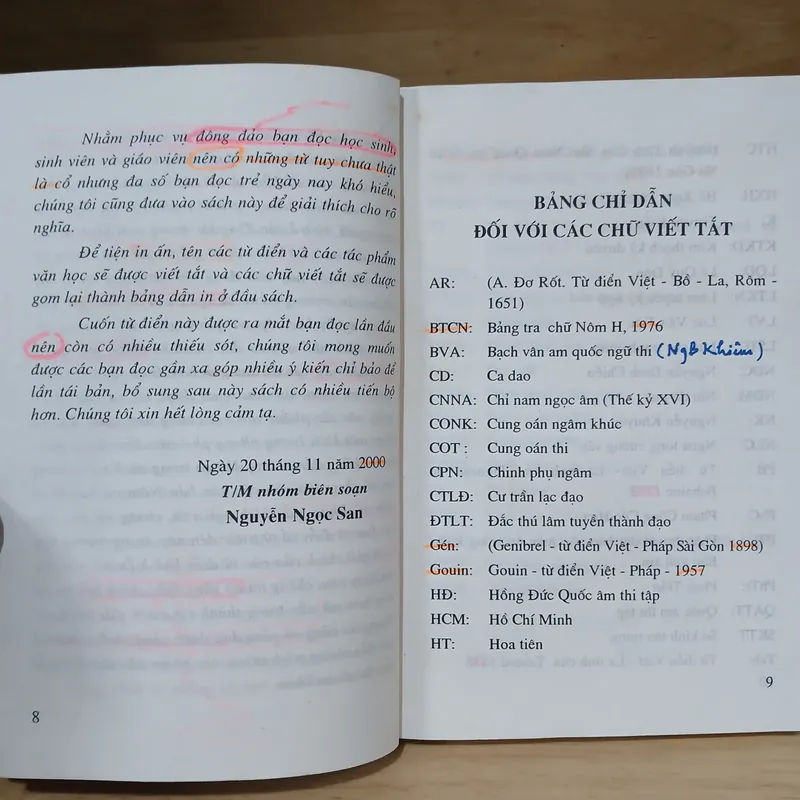 Nhằm phục vụ đông đảo bạn đọc học sinh,
sinh viên và giáo viên nên có những từ tuy chưa thật
là cổ nhưng đa số bạn đọc trẻ ngày nay khó hiểu,
chúng tôi cũng đưa vào sách này để giải thích cho rõ
nghĩa.
Để tiện in ấn, tên các từ điển và các tác phẩm
văn học sẽ được viết tắt và các chữ viết tắt sẽ được
gom lại thành bảng dẫn in ở đầu sách.
Cuốn từ điển này được ra mắt bạn đọc lần đầu
nên còn có nhiều thiếu sót, chúng tôi mong muốn
được các bạn đọc gần xa góp nhiều ý kiến chỉ bảo để
lần tái bản, bổ sung sau này sách có nhiều tiến bộ
hơn. Chúng tôi xin hết lòng cảm tạ.
Ngày 20 tháng 11 năm 2000
T/M nhóm biên soạn
Nguyễn Ngọc San
8
BẢNG CHỈ DẪN
ĐỐI VỚI CÁC CHỮ VIẾT TẮT
AR: (A. Đơ Rốt. Từ điển Việt - Bồ - La, Rôm -
1651)
BTCN: Bảng tra chữ Nôm H, 1976
BVA: Bạch vân am quốc ngữ thi (NgB Khiêm)
CD: Ca dao
CNNA: Chỉ nam ngọc âm (Thế kỷ XVI)
CONK: Cung oán ngâm khúc
COT : Cung oán thi
CPN: Chinh phụ ngâm
CTLĐ: Cư trần lạc đạo
ĐTLT: Đắc thú lâm tuyền thành đạo
Gén: (Genibrel - từ điển Việt - Pháp Sài Gòn 1898)
Gouin: Gouin - từ điển Việt - Pháp - 1957
HĐ: Hồng Đức Quốc âm thi tập
HCM: Hồ Chí Minh
HT: Hoa tiên
9